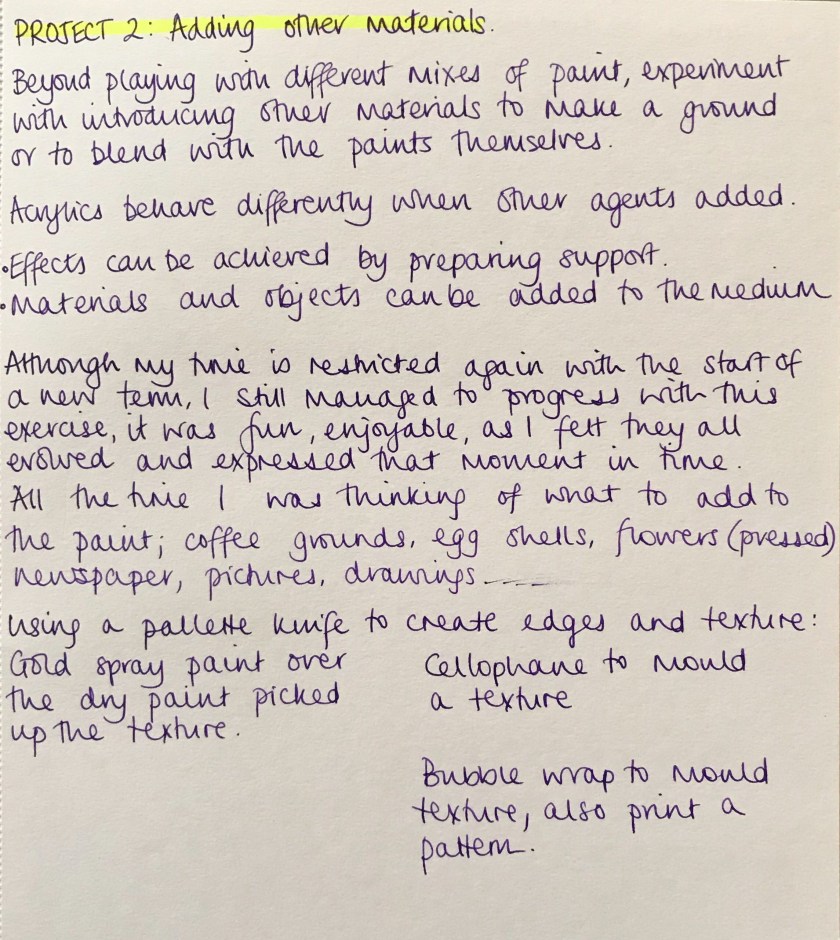 PROJECT 2: Adding other materials.
Beyond playing with different mixes of paint, experiment
with introducing other materials to make a ground
or to blend with the paints themselves.
Acrylics behave differently when other agents added.
•Effects can be achieved by preparing support.
•Materials and objects can be added to the medium
Although my time is restricted again with the start of
a new term, I still managed to progress with this
exercise, it was fun, enjoyable, as I felt they all
evolved and expressed that moment in time.
All the time I was thinking of what to add to
the paint; coffee grounds, egg shells, flowers (pressed)
newspaper, pictures, drawings
Using a pallette knife to create edges and texture:
Gold spray paint over
the dry paint picked
up the texture.
Cellophane to mould
a texture
Bubble wrap to mould
texture, also print a
pattern.